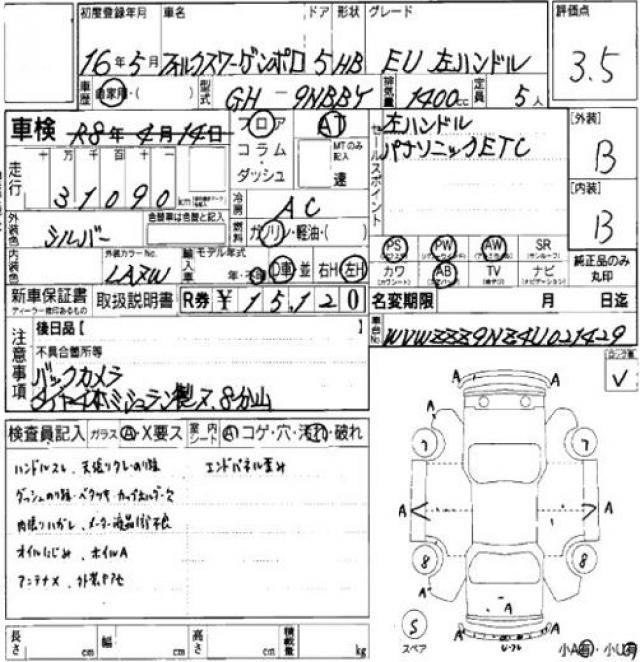 初度登録年月 車名 ドア 形状 グレード 評価点
16年5月 フォルクスワーゲンポロ 5 HB EU 左ハンドル 3.5
車歴 自家用・( ) 型式 GH-9NBBY 排気量 1400cc 定員 5人
車検 R8年4月14日 フロア AT セールスポイント 左ハンドル [外装]
パナソニックETC B
コラム・ MTのみ記入
ダッシュ 速
走行 十万千百十一
31090 km
冷房 AC [内装]
B
外装色 シルバー 色替車は色替と記入 燃料 ガソリン・軽油・( )
PS PW AW SR
(サンルーフ) 純正品のみ丸印
内装色 外装カラーNo. LA7W 輸入車 モデル年式 年・不明 D車 並 右H 左H
カワ AB TV ナビ
(カワシート) (エアバック) (ナビゲーション)
新車保証書 取扱説明書 R券 ¥15,120 名変期限 月 日迄
ディーラー捺印あるもの
車台No. WVWZZZ9NZ4U021429
注意事項 後日品【
不具合箇所等
バックカメラ
タイヤ4本ミシュラン製ス,8分山
検査員記入 ガラス A・X要ス 室内シート A コゲ・穴・汚れ・破れ
ハンドルスレ、天張りクレ・のり跡 エンドパネル歪み
ダッシュのり跡・ベタツキ・カップホルダー欠
内張りハガレ、メーター液晶不良
オイルにじみ、ホイルA
アンテナX、外装ヤケセ
A A
A A
7 7
A A
8 8
A A
A
S スペア
A A
小A有・小U有
長さ cm 幅 cm 高さ cm 積載量 kg